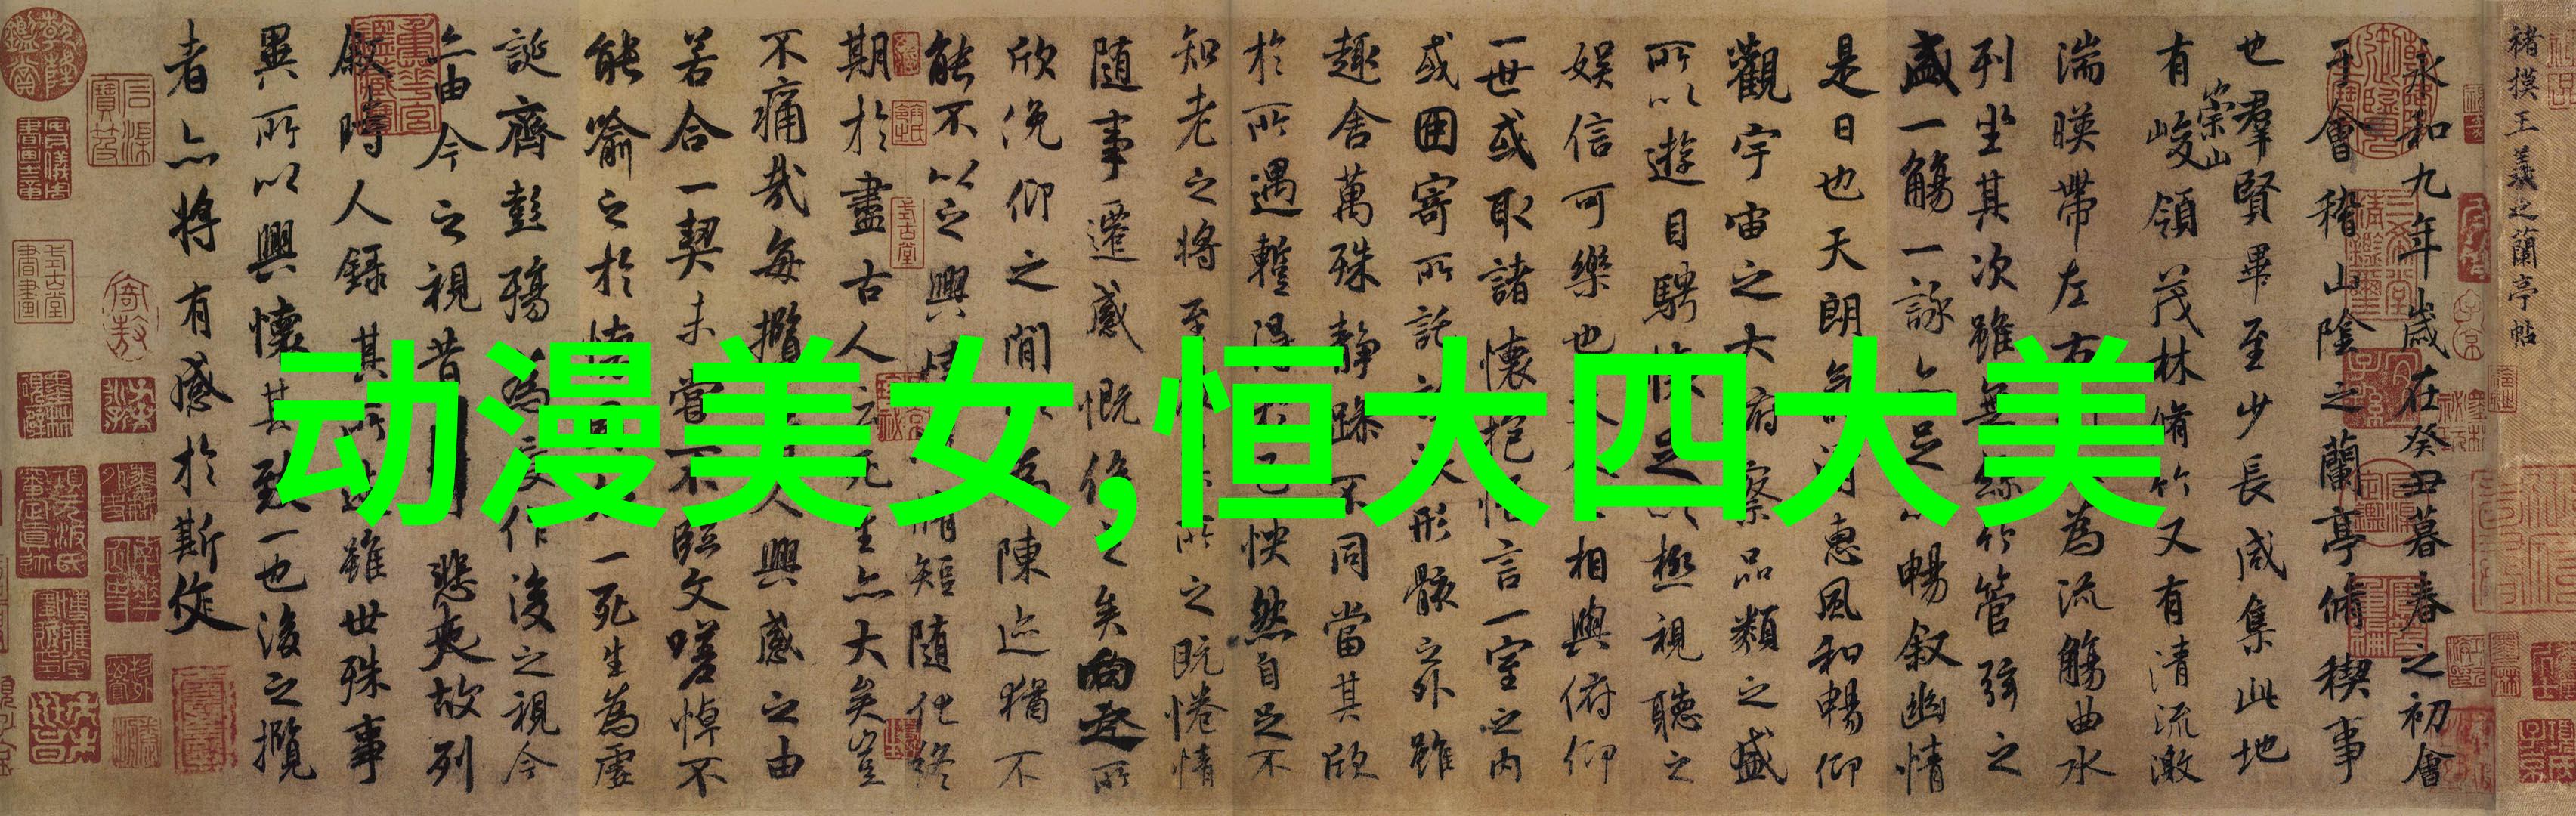 動漫美女,恒大四大美
褚摸王羲之蘭亭帖
永和九年歲在癸丑暮春之初會
于會稽山陰之蘭亭脩稧事
也羣賢畢至少長咸集此地
有崇山峻領茂林脩竹又有清流激
湍暎帶左右為流觴曲水
列坐其次雖無絲竹管弦之
盛一觴一詠亦足以暢叙幽情
是日也天朗氣清惠風和暢仰
觀宇宙之大俯察品類之盛
所以遊目騁懷足以極視聽之
娛信可樂也夫人之相與俯仰
一世或取諸懷抱悟言一室之內
或因寄所託放浪形骸之外雖
趣舍萬殊静躁不同當其欣
於所遇蹔得於己怏然自足不
知老之將至及其所之既惓情
隨事遷感慨係之矣向之所
欣俛仰之閒以為陳迹猶不
能不以之興懷況脩短隨化終
期於盡古人云死生亦大矣豈
不痛哉每攬昔人興感之由
若合一契未嘗不臨文嗟悼不
能喻之於懷固知一死生為虛
誕齊彭殤為妄作後之視今
亦由今之視昔悲夫故列
叙時人錄其所述雖世殊事
異所以興懷其致一也後之攬
者亦將有感於斯文